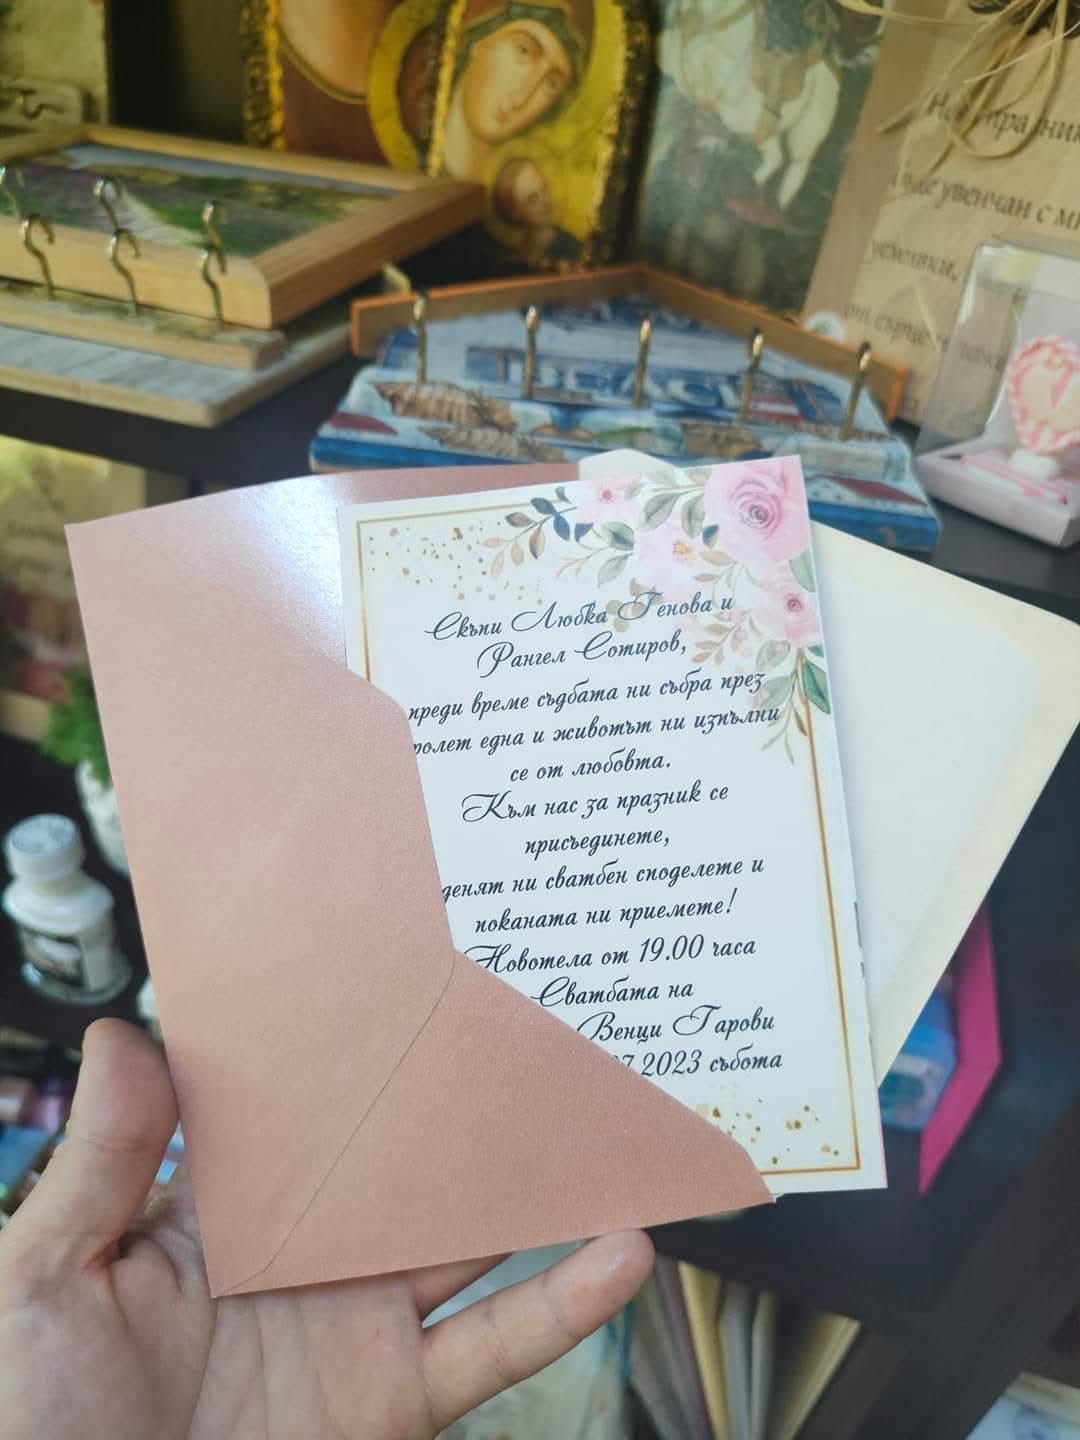 увенчан с
усмивки,
от сърце
BEACH
Скъпи Любка Генова и
Рангел Сотиров,
преди време съдбата ни събра през
ролет една и животът ни изпълни
се от любовта.
Към нас за празник се
присъединете,
денят ни сватбен споделете и
поканата ни приемете!
Новотела от 19.00 часа
Сватбата на
Венци Гарови
07.2023 събота